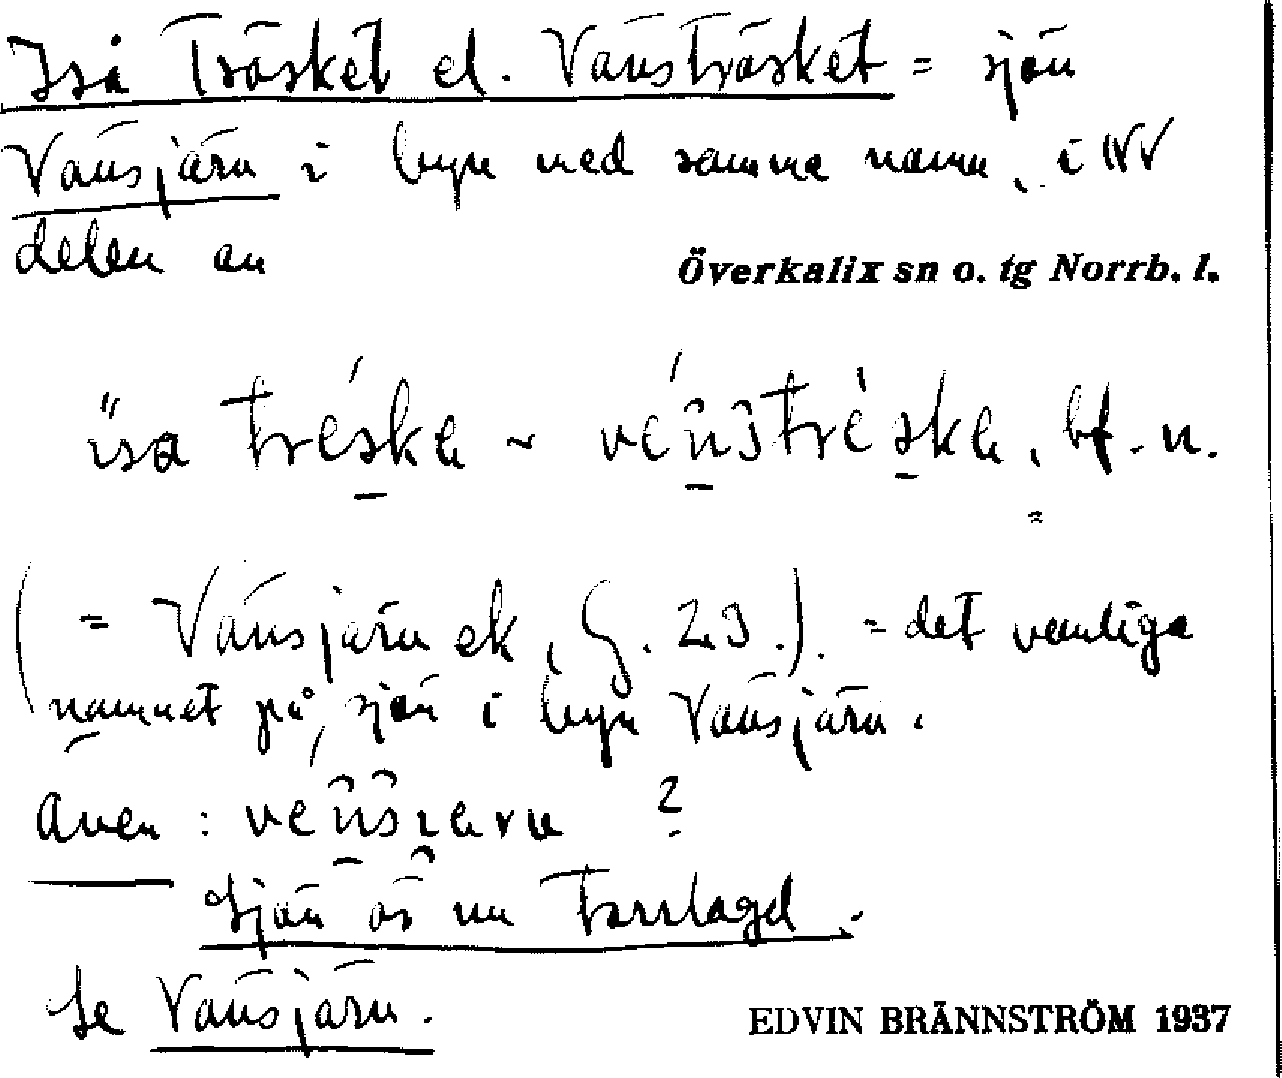 Iså Träsket el. Vänsträsket = sjön
Vänsjärn i byn med samma namn, i NV
delen av
Överkalix sn o. tg Norrb. l.
bf. n.
(= Vänsjärn ek, g. 23.). = det vanliga
namnet på sjön i byn Vänsjärn.
även : ?
Sjön är nu torrlagd.
Se Vänsjärn.
EDVIN BRÄNNSTRÖM 1937